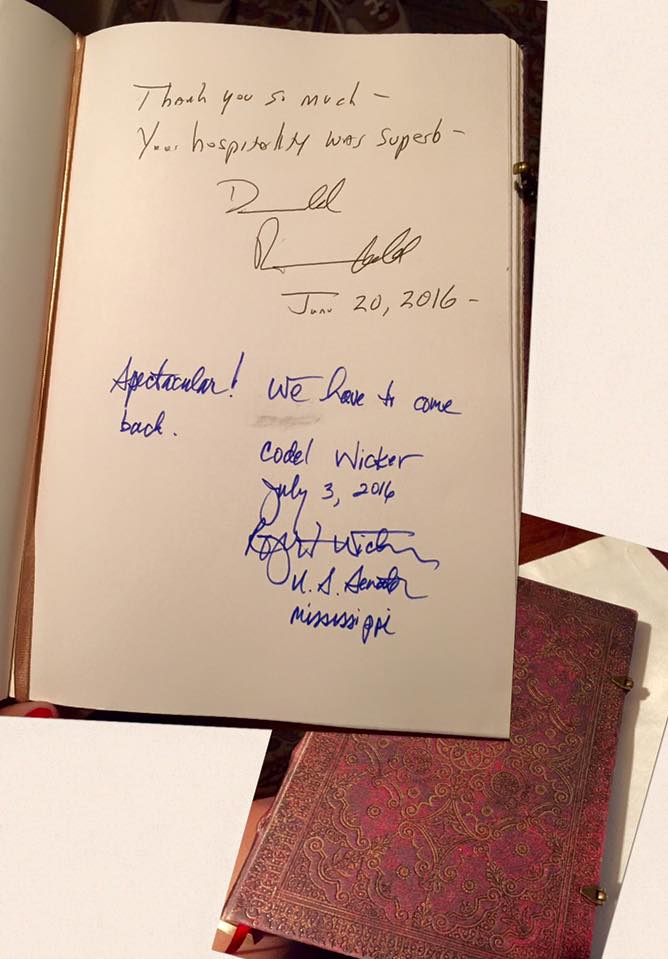 Thank you so much –
Your hospitality was superb –
Donald
June 20, 2016 –
Spectacular! We have to come
back.
Codel Wicker
July 3, 2016
Roger Wicker
U.S. Senator
Mississippi